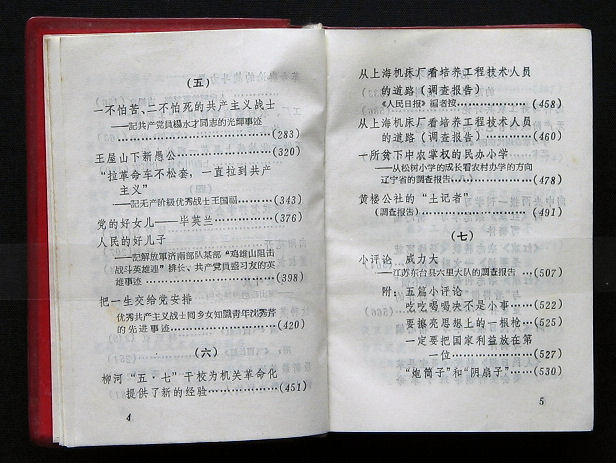 （五）
一不怕苦、二不怕死的共产主义战士
——記共产党員楊水才同志的光輝事迹
……………………(283)
王屋山下新愚公……………………(320)
“拉革命车不松套，一直拉到共产
主义”
——記无产阶級优秀战士王国福…………(343)
党的好女儿——毕英兰…………(376)
人民的好儿子
——記解放軍济南部队某部“鸡雄山阻击
战斗英雄連”排长、共产党員盛习友的英
雄事迹……………………(398)
把一生交给党安排
优秀共产主义战士回乡女知識青年沈秀芹
的先进事迹……………………(420)
（六）
柳河“五·七”干校为机关革命化
提供了新的经验……………………(451)
4
从上海机床厂看培养工程技术人员
的道路（调查报告）
《人民日报》編者按……………………(458)
从上海机床厂看培养工程技术人员
的道路（调查报告）…………(460)
一所贫下中农掌权的民办小学
——从松树小学的成长看农村办学的方向
辽宁省的調查报告……………………(478)
黄楼公社的“土记者”
（調查报告）……………………(491)
（七）
小评论 威力大
——江苏东台县六里大队的調查报告…(507)
附：五篇小评论
吃吃喝喝决不是小事……(522)
要擦亮思想上的一根枪…(525)
一定要把国家利益放在第
一位……………………(527)
“炮筒子”和“阴扇子”……(530)
5